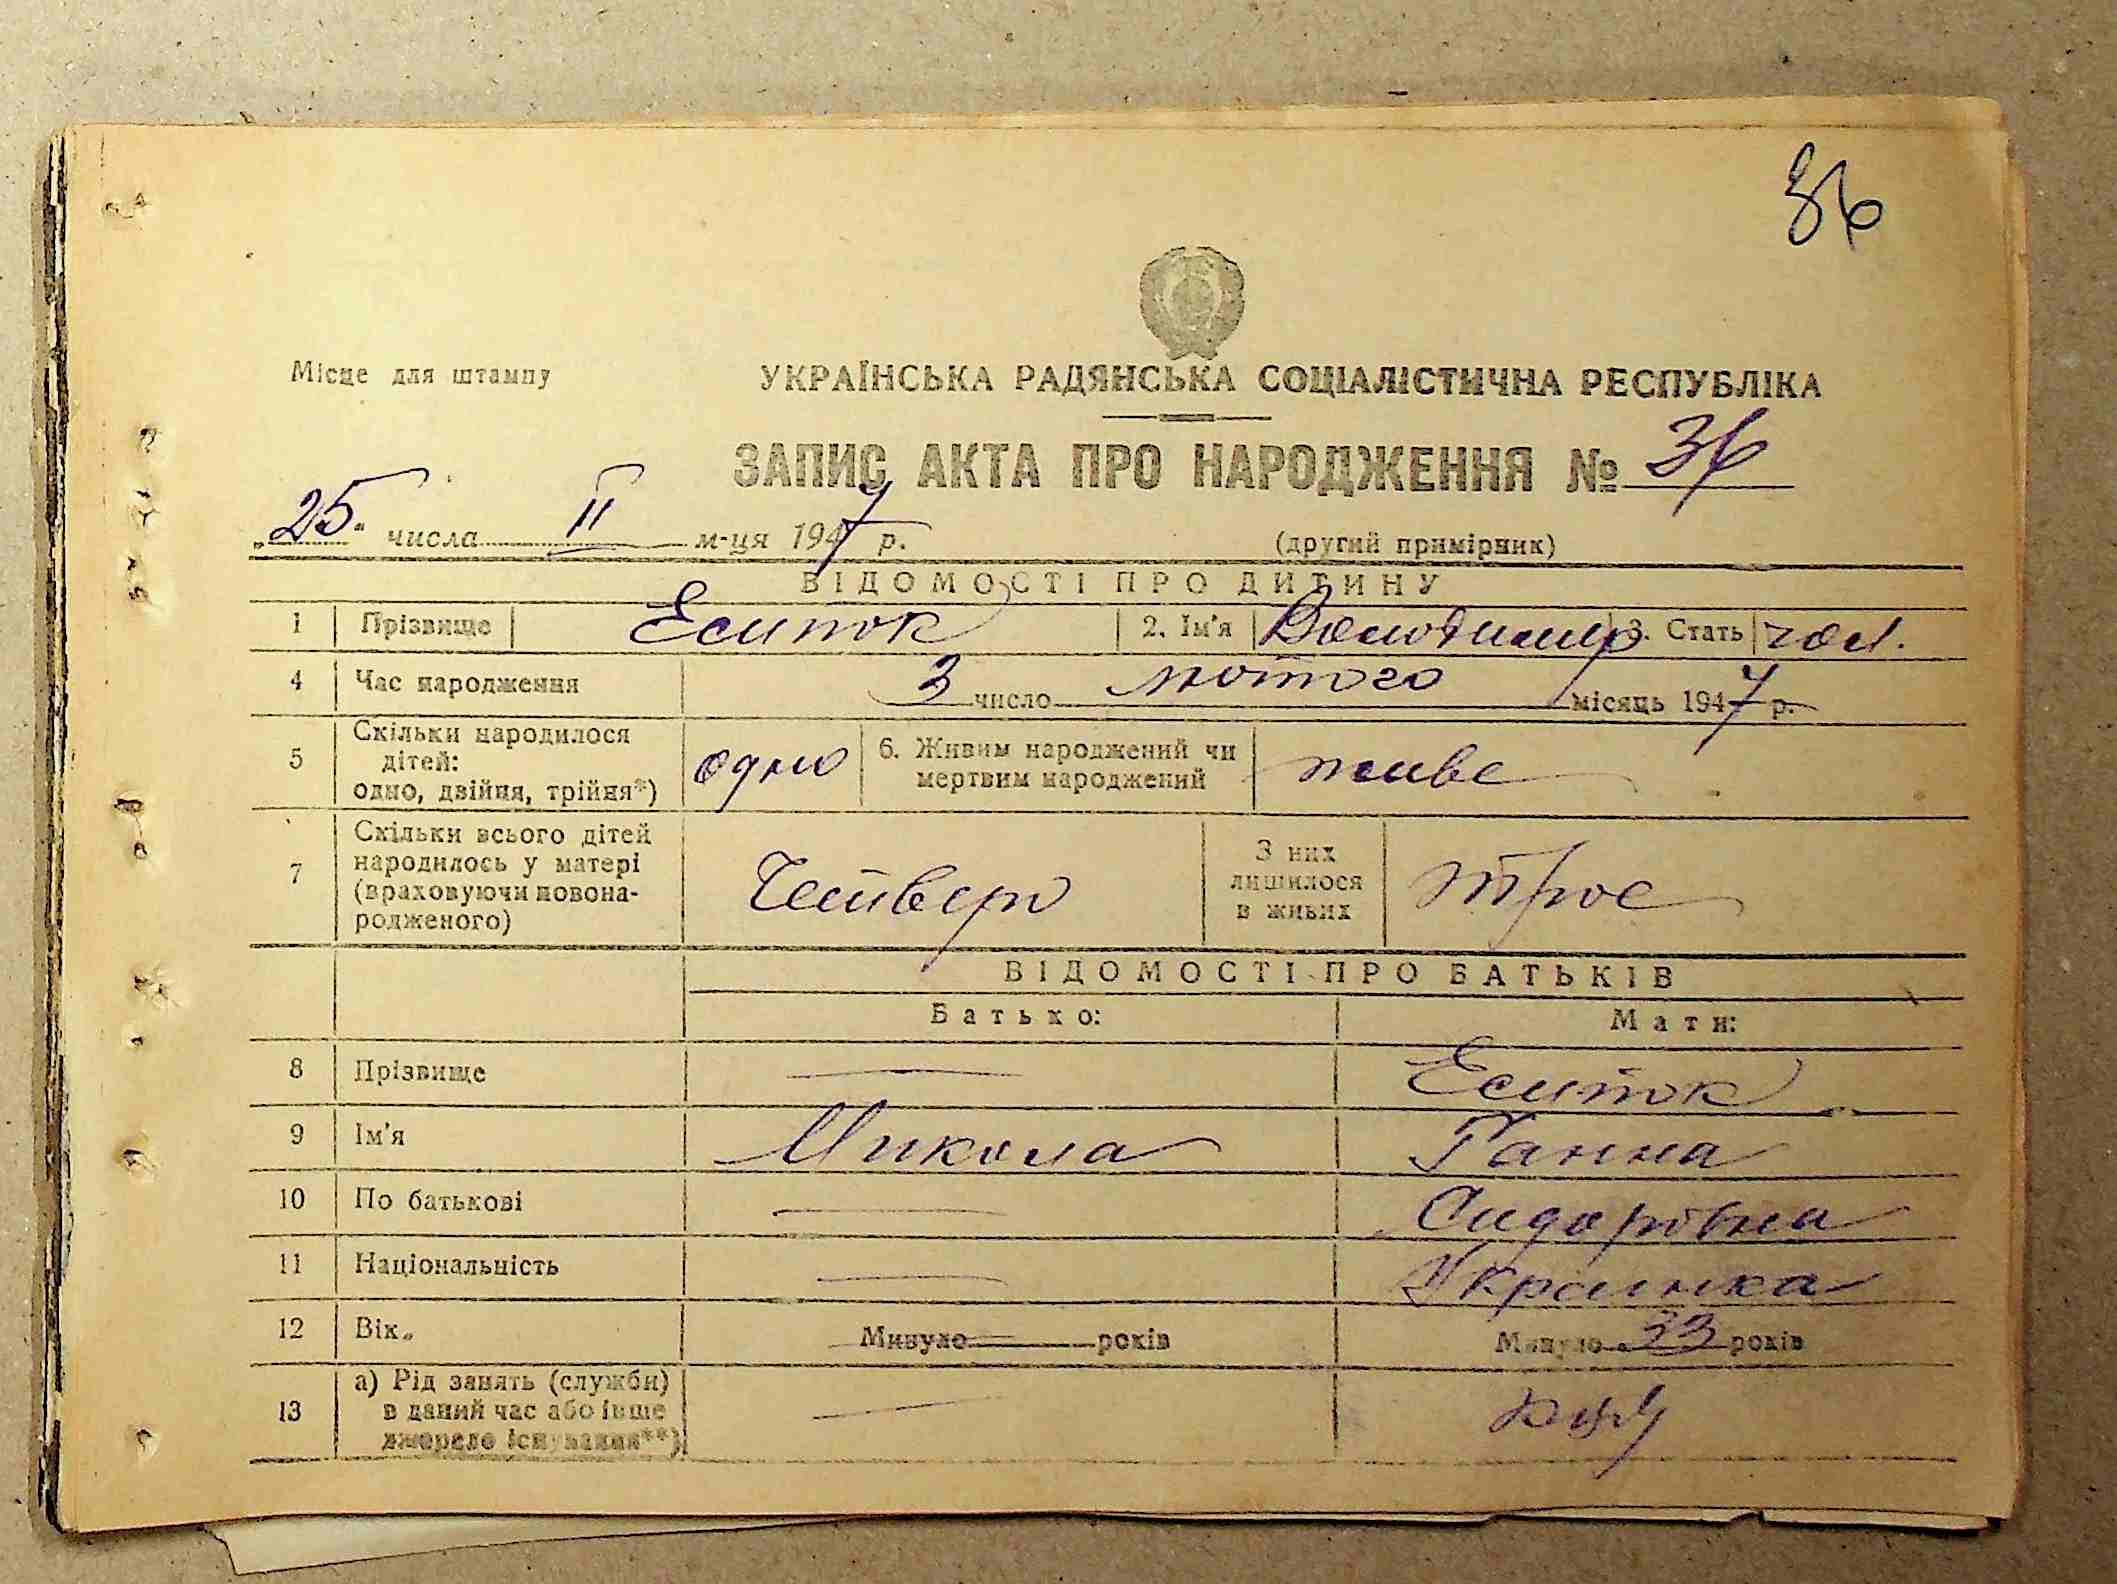 36
Місце для штампу
УКРАЇНСЬКА РАДЯНСЬКА СОЦІАЛІСТИЧНА РЕСПУБЛІКА
ЗАПИС АКТА ПРО НАРОДЖЕННЯ № 36
„25“ числа II м-ця 1947 р.
(другий примірник)
ВІДОМОСТІ ПРО ДИТИНУ
1 Прізвище Есипок 2. Ім'я Володимир 3. Стать чол.
4 Час народження 3 число лютого місяць 1947 р.
5 Скільки народилося дітей: одно, двійня, трійня*) одно 6. Живим народжений чи мертвим народжений живе
7 Скільки всього дітей народилось у матері (враховуючи новонародженого) Четверо З них лишилося в живих трое
ВІДОМОСТІ ПРО БАТЬКІВ
Батько: Мати:
8 Прізвище — Есипок
9 Ім'я Микола Ганна
10 По батькові — Сидоровна
11 Національність — Украинка
12 Вік. Минуло — років Минуло 33 років
13 а) Рід занять (служби) в даний час або інше джерело існування**) —